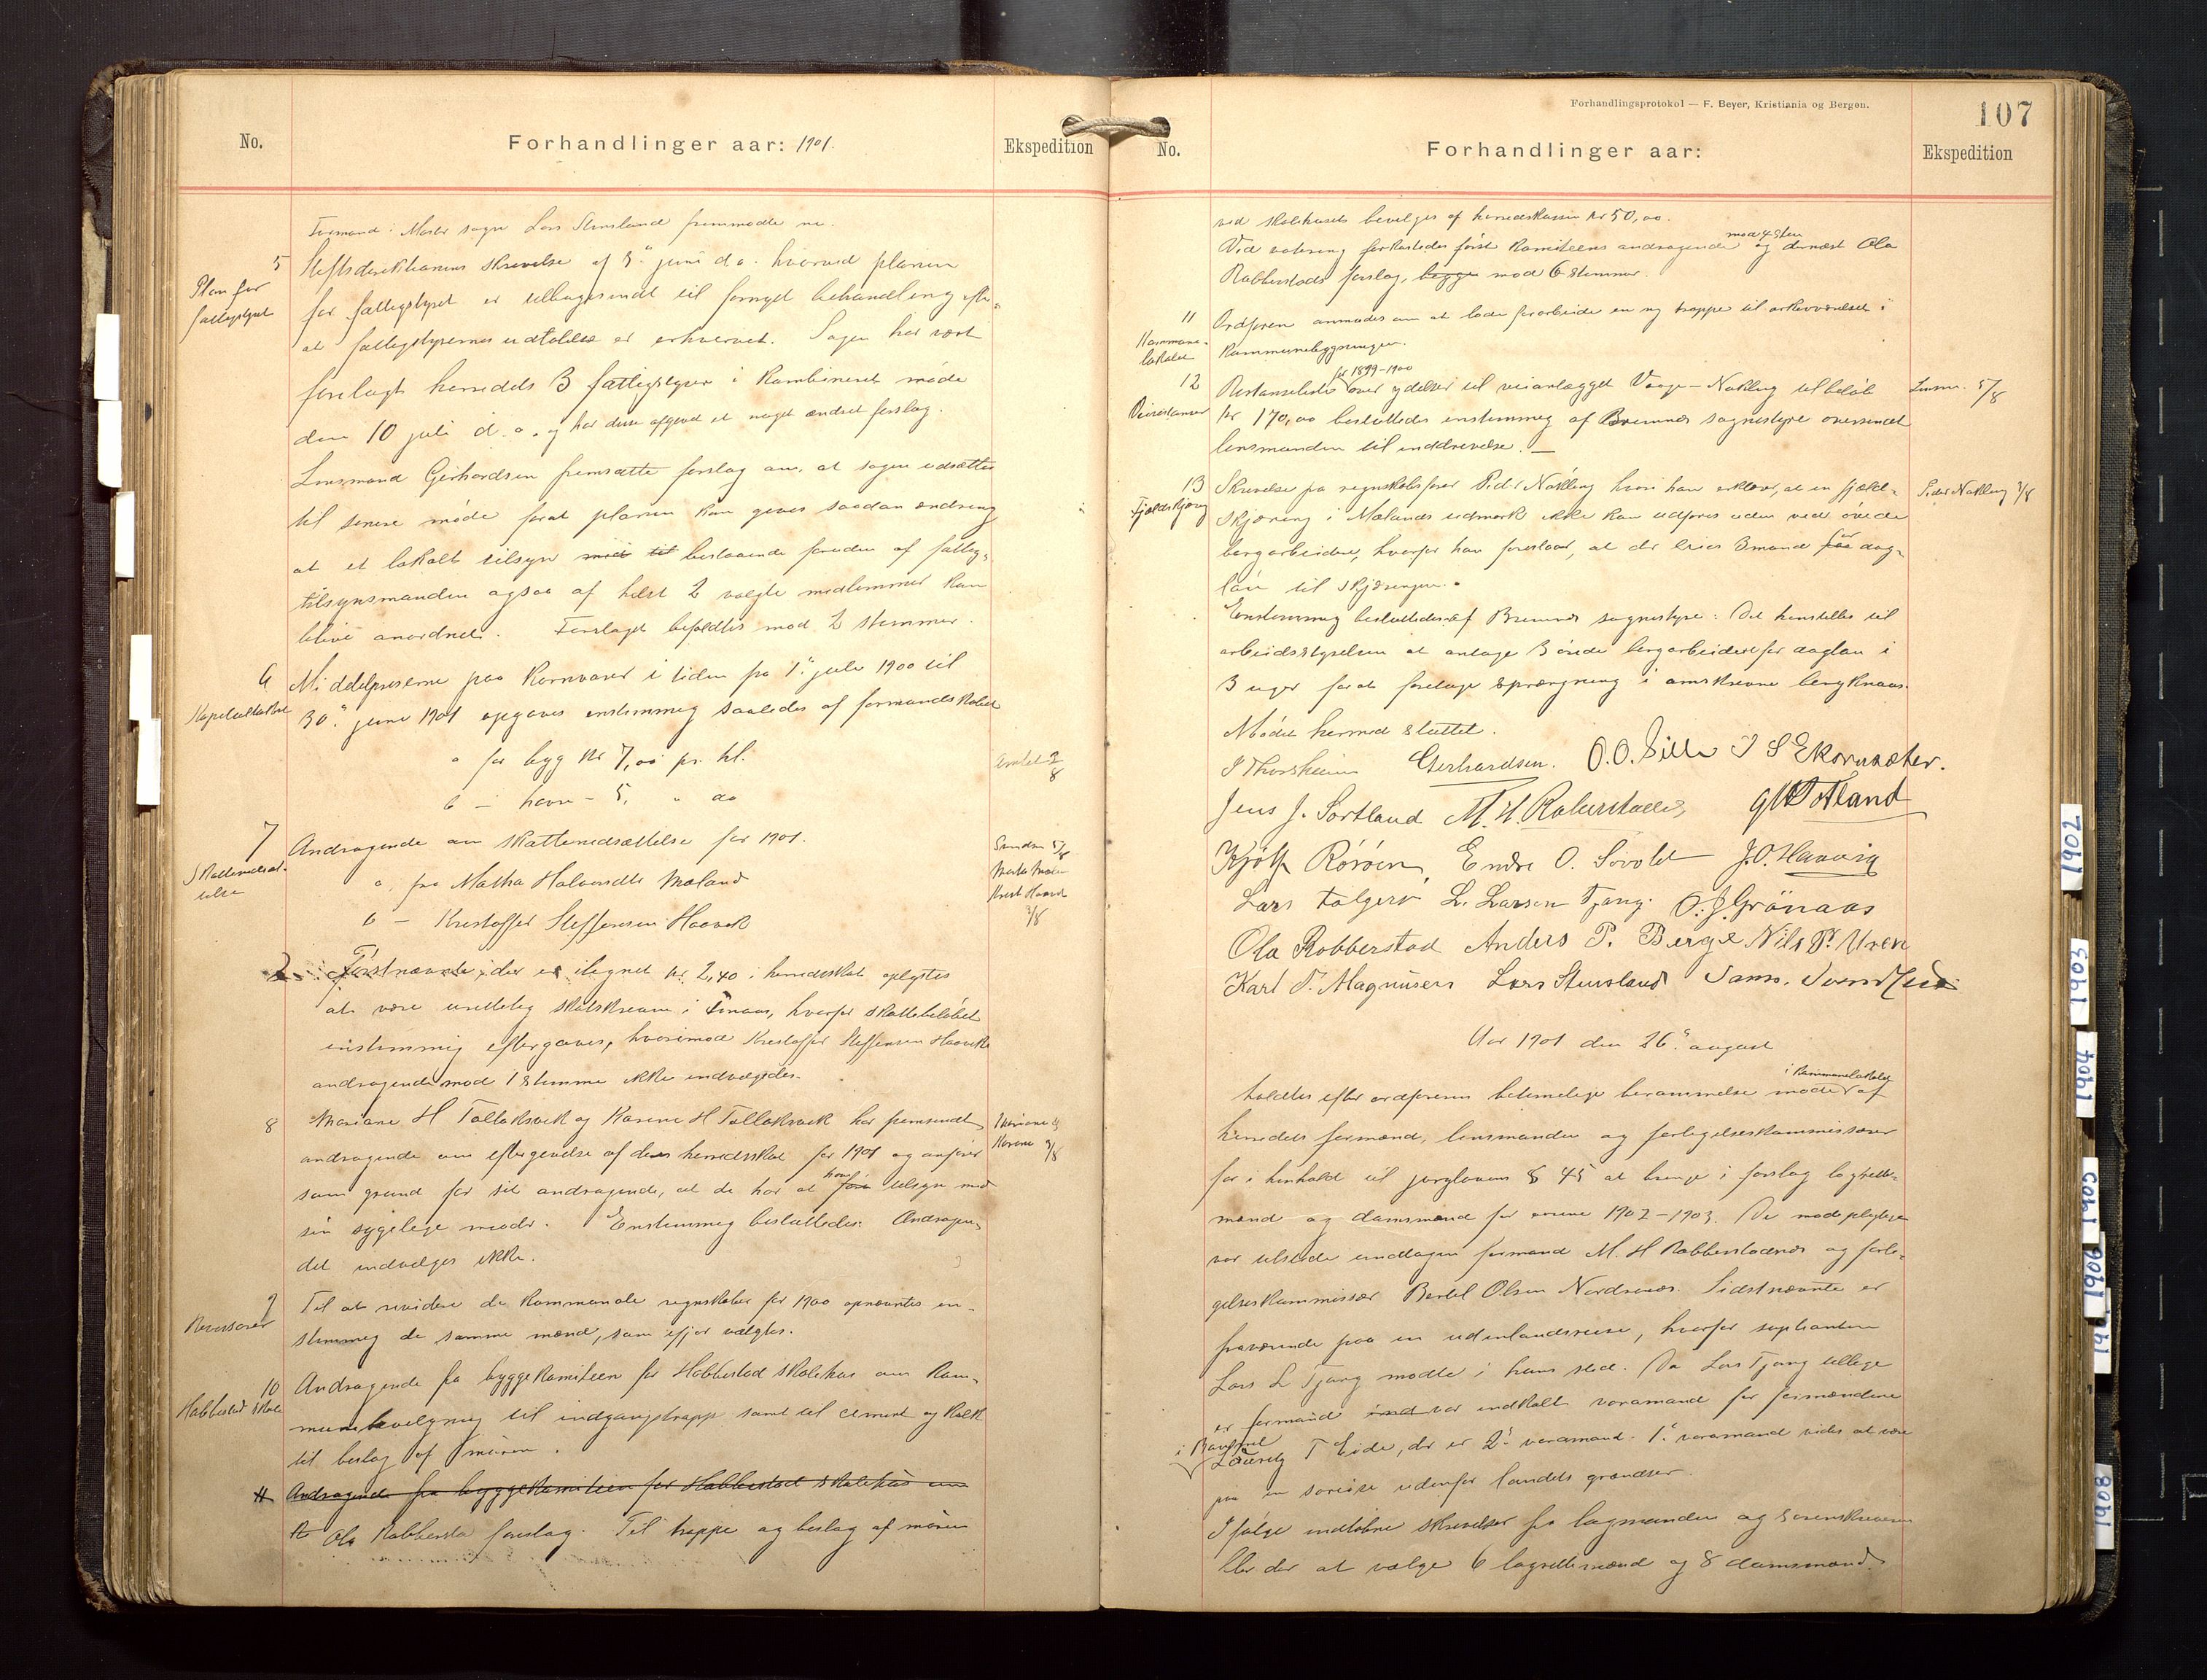 No.
Forhandlinger aar: 1901.
Ekspedition
Formand i Moster sogn Lars Stensland fremmødte nu.
5
Plan for
fattigstyret
Stiftsdirektionens skrivelse af 5. juni d. a. hvorved planen
for fattigstyret er tilbagesendt til fornyet behandling efter
at fattigstyrernes udtalelse er erhvervet. Sagen har vært
forelagt herredets 3 fattigstyrer i kombineret møde
den 10 juli d. a. og har disse afgivet et noget ændret forslag.
Lensmand Gerhardsen fremsatte forslag om, at sagen udsættes
til senere møde forat planen kan gives saadan ændring
at et lokalt tilsyn bestaaende foruden af fattig-
tilsynsmanden ogsaa af helst 2 valgte medlemmer kan
blive anordnet. Forslaget befaldtes mod 2 stemmer.
6
Kapitelstakst
Middelpriserne paa kornvarer i tiden fra 1. juli 1900 til
30. juni 1901 opgaves enstemmig saaledes af formandskabet
a for byg kr 7,00 pr. hl.
b – havre - 5, " do
Amtet 2/8
7
Skattenedsæt-
telse
Andragende om skattenedsættelse for 1901.
a, fra Martha Halvorsdtr Mæland
b — Kristoffer Steffensen Haavik
Førstnævnte, der er ilignet kr. 2,40 i herredsskat oplystes
at være urettelig skatskreven i Finaas, hvorfor skattebeløbet
enstemmig eftergaves, hvorimod Kristoffer Steffensen Haaviks
andragende mod 1 stemme ikke indvilgedes.
8
Mariane H Tollaksvik og Karene H Tollaksvik har fremsendt
andragende om eftergivelse af deres herredsskat for 1901 og anfører
som grund for sit andragende, at de har at have tilsyn med
sin sygelige moder. Enstemmig besluttedes: Andragen-
det indvilges ikke.
Mariane og
Karene 3/8
9
Revisorer
Til at revidere de kommunale regnskaber for 1900 opnævntes en-
stemmig de samme mænd, som ifjor valgtes.
10
Habbestad skole
Andragende fra byggekomiteen for Habbestad skolehus om kom-
munebevilgning til indgangstrappe samt til cement og kalk
til beslag af muren.
11 Andragende fra byggekomiteen for Habbestad skolehus om
Ola Robbersta forslag. Til trappe og beslag af muren
Forhandlingsprotokol — F. Beyer, Kristiania og Bergen.
107
No.
Forhandlinger aar:
Ekspedition
ved skolehuset bevilges af herredskassen kr 50,00.
Ved votering forkastedes først komiteens andragende mod 4 stem og dernæst Ola
Robberstads forslag, begge mod 6 stemmer.
11
Kommune-
lokalet
Ordføren anmodes om at lade forarbeide en ny trappe til arkivværelset i
kommunebygningen.
12
Veirestanser
Restanseliste for 1899-1900 over ydelser til veianlægget Vaage - Nøkling til beløb
kr 170,00 besluttedes enstemmig af Bremnes sognestyre oversendt
lensmanden til inddrivelse. —
Lensm. 5/8
13
Fjeldskjæring
Skrivelse fra regnskabsfører Peder Nøkling hvori han erklærer, at en fjeld-
skjæring i Mælands udmark ikke kan udføres uden ved øvede
bergarbeidere, hvorfor han foreslaar, at der leies 3 mand for dag-
løn til skjæringen.
Enstemmig besluttedes af Bremnes sognestyre: Det henstilles til
arbeidsstyrelsen at antage 3 øvede bergarbeidere for dagløn i
3 uger forat foretage sprængning i omskrevne bergknaus.
Peder Nøkling 3/8
Mødet hermed sluttet.
J Thorsheim Gerhardsen. O. O. Lille J S Ekornsæter.
Jens J. Sortland M. H. Robberstadnes
Kjøln Rørøen, Endre O. Søvold J. O. Haavig
Lars Folgerø L. Larsen Tjong. O. J. Grönaas
Ola Robberstad Anders P. Berge Nils P. Uren
Karl T. Magnusen Lars Stensland
Aar 1901 den 26. august
holdtes efter ordførerens betimelige berammelse møde i kommunelokalet af
herredets formænd, lensmanden og forligelseskommissærer
for i henhold til jurylovens § 45 at bringe i forslag lagrette-
mænd og domsmænd for aarene 1902-1903. De mødepligtige
var tilstede undtagen formand M. H Robberstadnes og forli-
gelseskommissær Bertel Olsen Nordsnæs. Sidstnævnte er
fraværende paa en udenlandsreise, hvorfor suplianten
Lars L Tjong mødte i hans sted. Da Lars Tjong tillige
er formand var indkaldt varamand for formændene
Lauritz T Eide, der er 2. varamand. 1. varamand vides at være
paa en søreise udenfor landets grændser.
Ifølge indløbne skrivelser fra lagmanden og sorenskriveren
blir der at vælge 6 lagrettemænd og 8 domsmænd.
1902
1903
1904
1905
1906
1908